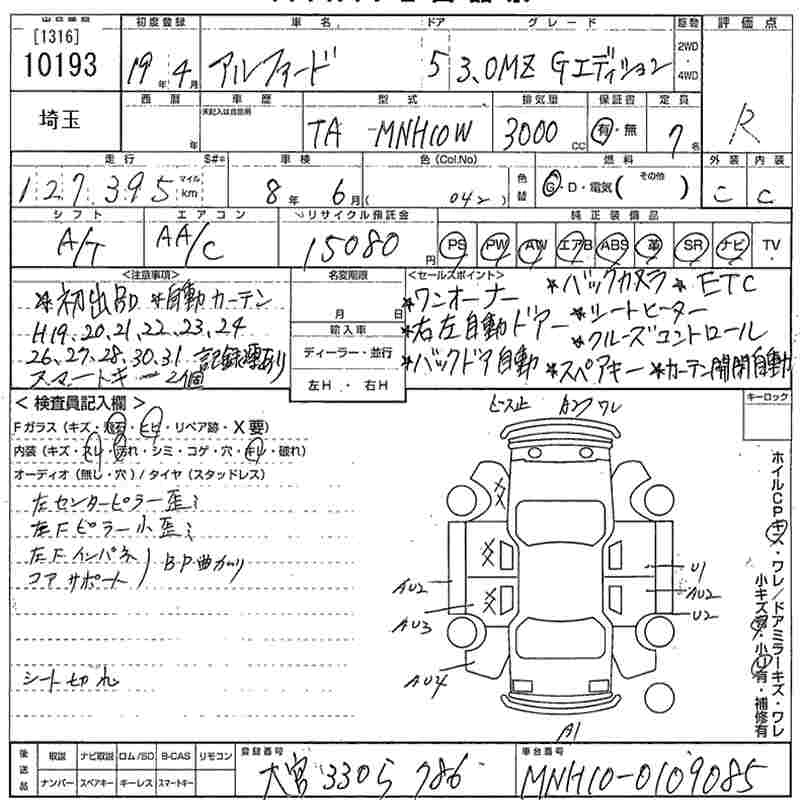 [1316]
10193
初度登録
19年 4月
車名
アルファード
ドア
5
グレード
3.0MZ Gエディション
駆動
2WD
4WD
評価点
R
埼玉
西暦
年
車歴
未記入は自家用
型式
TA MNH10W
排気量
3000 CC
保証書
有・無
定員
7名
走行
127,395 マイル km
S#=
車検
8年 6月
色(Col.No)
( 042 )
色替
燃料
G・D・電気( その他 )
外装
C
内装
C
シフト
A/T
エアコン
AA/C
リサイクル預託金
15080円
純正装備品
PS PW AW エアB ABS 革 SR ナビ TV
<注意事項>
*初出品 *自動カーテン
H19.20.21.22.23.24
26.27.28.30.31 記録簿あり
スマートキー2個
名変期限
月 日
輸入車
ディーラー・並行
左H・右H
<セールスポイント>
*ワンオーナー *バックカメラ *ETC
*右左自動ドアー *シートヒーター
*クルーズコントロール
*バックドア自動 *スペアキー *カーテン開閉自動
<検査員記入欄>
Fガラス(キズ・飛石・ヒビ・リペア跡・X要)
内装(キズ・スレ・汚れ・シミ・コゲ・穴・キレ・破れ)
オーディオ(無し・穴)/タイヤ(スタッドレス)
左センターピラー歪ミ
左Fピラー小歪ミ
左Fインパネ
コアサポート
B・P曲カリ
シート切れ
ビス止 A2 ワレ
キーロック
ホイルCPキズ・ワレ/ドアミラーキズ・ワレ
小キズ・小有・補修有
XX
XX
XX
AU2
AU3
AU4
U1
AU2
U2
A1
後送品
取説 ナビ取説 ロム/SD B-CAS リモコン
ナンバー スペアキー キーレス スマートキー
登録番号
大宮 330 ら 786
車台番号
MNH10-0109085